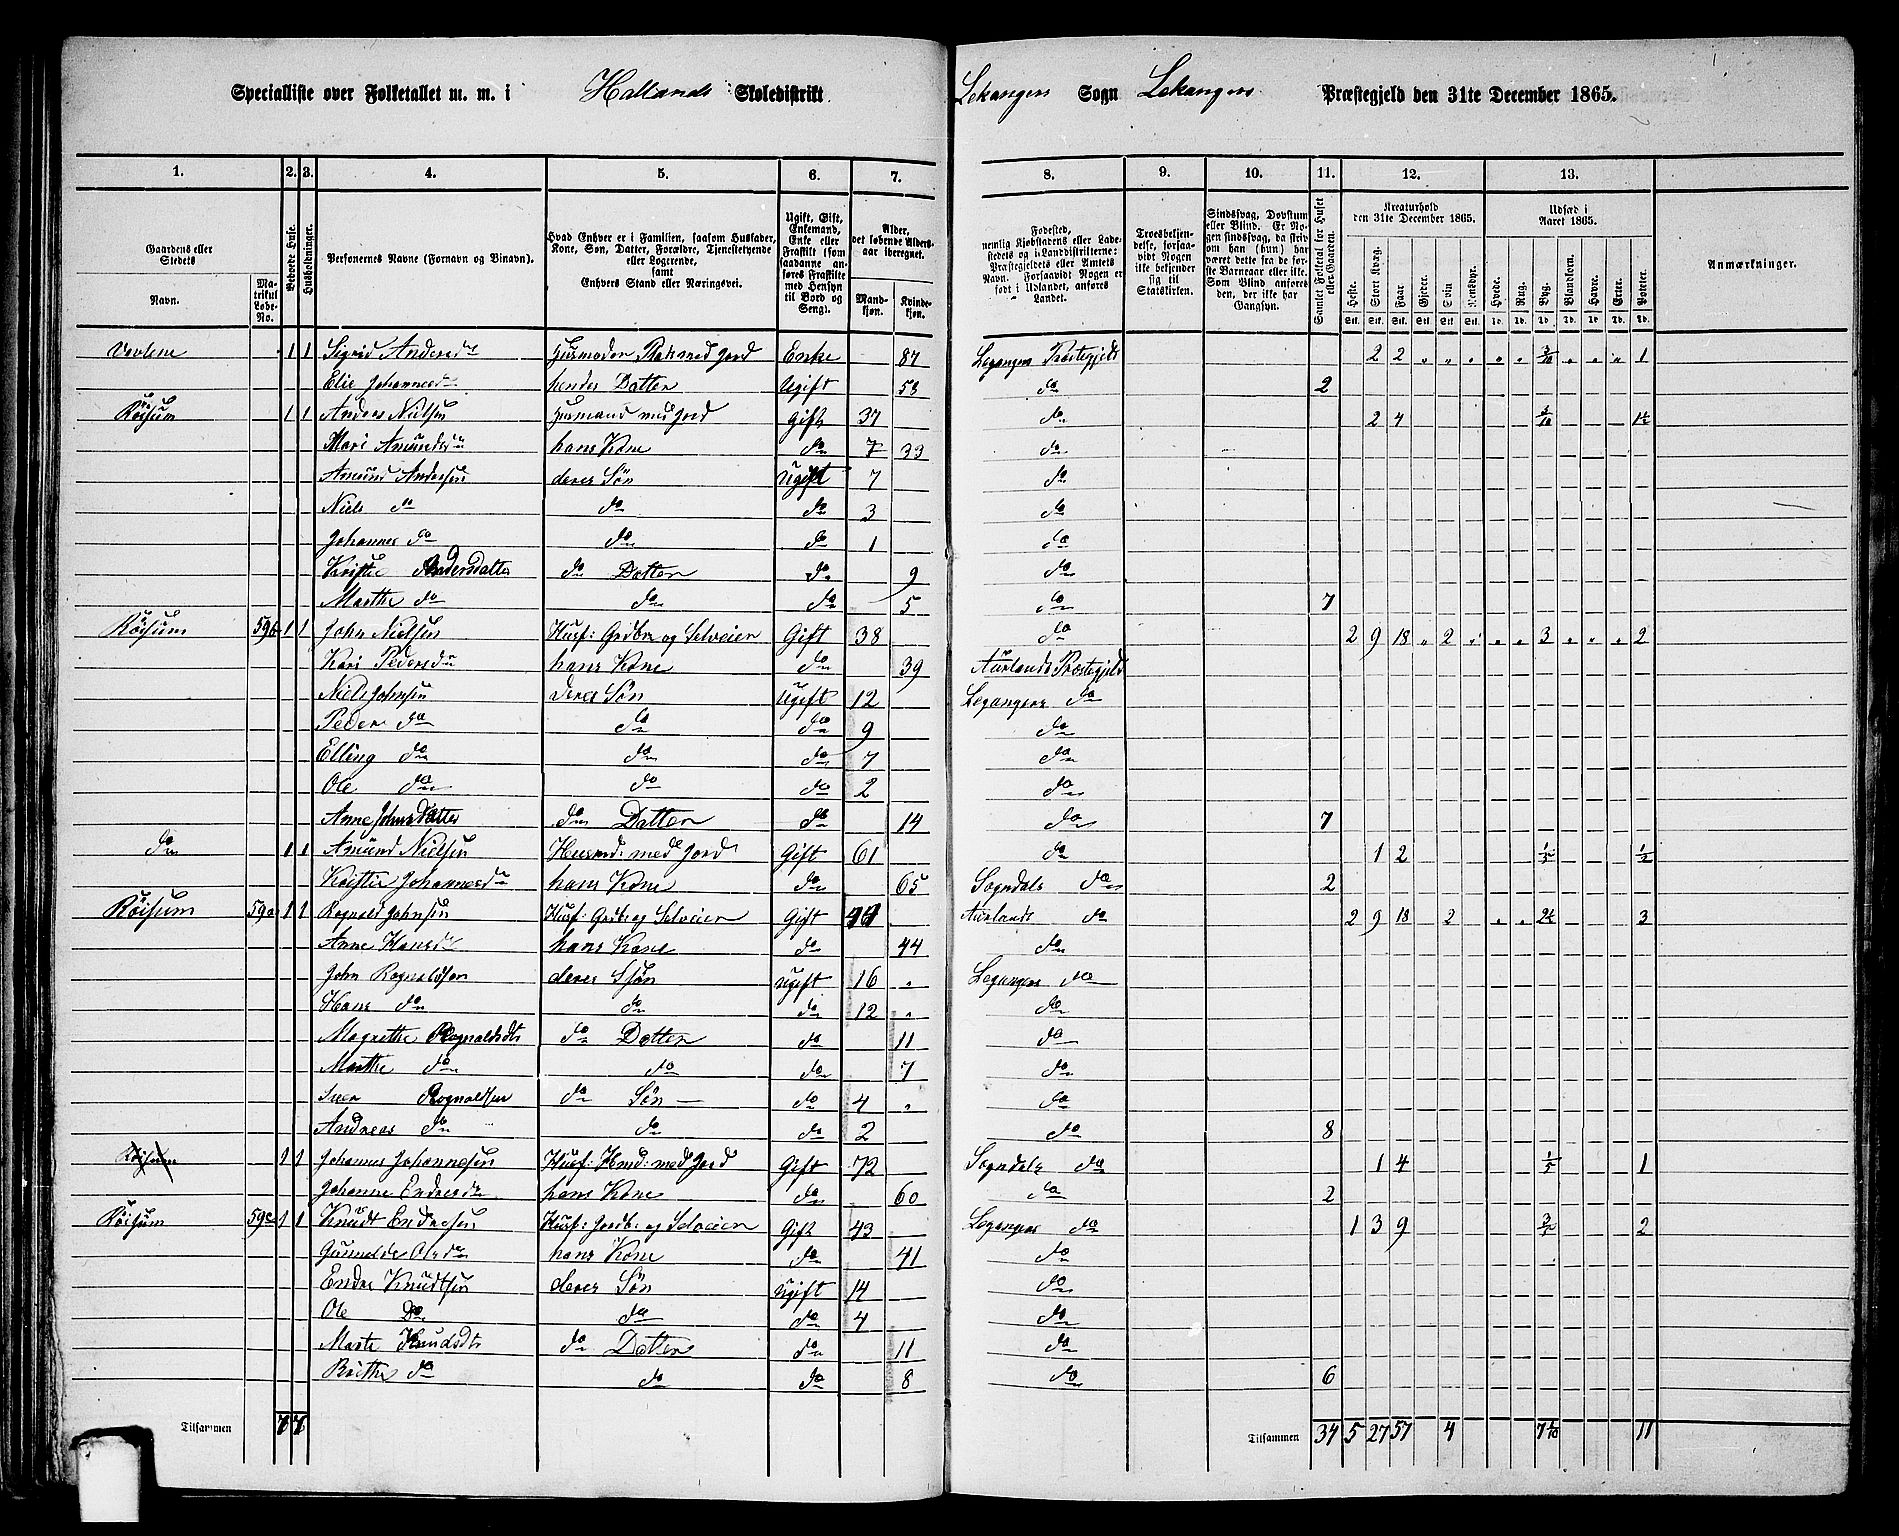 Specialliste over Folketallet m. m. i Hallands Skoledistrikt Lekangers Sogn Lekangers Præstegjeld den 31te December 1865.
1. 2. 3. 4. 5. 6. 7. 8. 9. 10. 11. 12. 13.
Gaardens eller Stedets Navn. Matrikul Løbe-No. Beboede Huse. Husholdninger. Personernes Navne (Fornavn og Binavn). Hvad Enhver er i Familien, saasom Husfader, Kone, Søn, Datter, Forældre, Tjenestetyende eller Logerende, samt Enhvers Stand eller Næringsvei. Ugift, Gift, Enkemand, Enke eller Fraskilt (som saadanne anføres Fraskilte med Hensyn til Bord og Seng). Alder, det løbende Aldersaar iberegnet. Mandkjøn. Kvindekjøn. Fødested, nemlig Kjøbstadens eller Ladestedets og i Landdistrikterne: Præstegjeldets eller Amtets Navn. Forsaavidt Nogen er født i Udlandet, anføres Landet. Troesbekjendelse, forsaavidt Nogen ikke bekjender sig til Statskirken. Sindssvag, Døvstum eller Blind. Er Nogen sindssvag, da skrives om han (hun) har været dette fra de første Barneaar eller ikke. Som Blind anføres den, der ikke har Gangsyn. Samlet Folketal for Huset eller Gaarden. Kreaturhold den 31te December 1865. Heste. Stort Kvæg. Faar. Gjeder. Svin. Rensdyr. Udsæd i Aaret 1865. Hvede. Rug. Byg. Blandkorn. Havre. Erter. Poteter. Anmærkninger.
1 1 Sigrid Andersd Husmoder Plads med Jord Enke 87 Leganger Præstegjeld 2 2 3/10 1
Elie Johannesd hendes Datter Ugift 53 do 2
Röisum 1 1 Anders Nielsen Husmand med Jord Gift 37 do 2 4 3/10 1½
Mari Amundsd hans Kone do 7 33 do
Amund Andersen deres Søn Ugift 7 do
Niels do do do 3 do
Johannes do do do 1 do
Kristie Andersdatter do Datter do 9 do
Marthe do do do 5 do 7
Röisum 59b 1 1 John Nielsen Husf: Grdbr og Selveier Gift 38 do 2 9 18 2 3 2
Kari Pedersd hans Kone do 39 Aurlands Præstegjeld
Niels Johnsen deres Søn Ugift 12 Legangers do
Peder do do do 9 do
Elling do do do 7 do
Ole do do do 2 do
Anne Johnsdatter do Datter do 14 do 7
do 1 1 Amund Nielsen Husmd: med Jord Gift 61 do 1 2 1/5 1/2
Kristie Johannesd hans Kone do 65 Sogndals do 2
Röisum 59a 1 1 Rognald Johnsen Husf: Grdbr og Selveier Gift Aurlands do 2 9 18 2 2½ 3
Anne Hansd hans Kone do 44 do
John Rognaldsen deres Søn Ugift 16 Legangers do
Hans do do do 12 do
Magrethe Rognaldsdt do Datter do 11 do
Marthe do do do 7 do
Siver Rognaldsen do Søn do 4 do
Andreas do do do 2 do 8
Röisum 1 1 Johannes Johannesen Husf: Hmd: med Jord Gift 72 Sogndals do 1 4 1/5 1
Johanne Endresd hans Kone do 60 do 2
Röisum 59c 1 1 Knudt Endresen Husf: Gordb: og Selveier Gift 43 Legangers do 1 3 9 2
Gunnilde Olsd hans Kone do 41 do
Endre Knudtsen deres Søn Ugift 14 do
Ole Do do do 4 do
Marte Knudsdt do Datter do 11 do
Brithe do do do 8 do 6
Tilsammen 7 7 Tilsammen 34 5 27 57 4 7 1/10 11